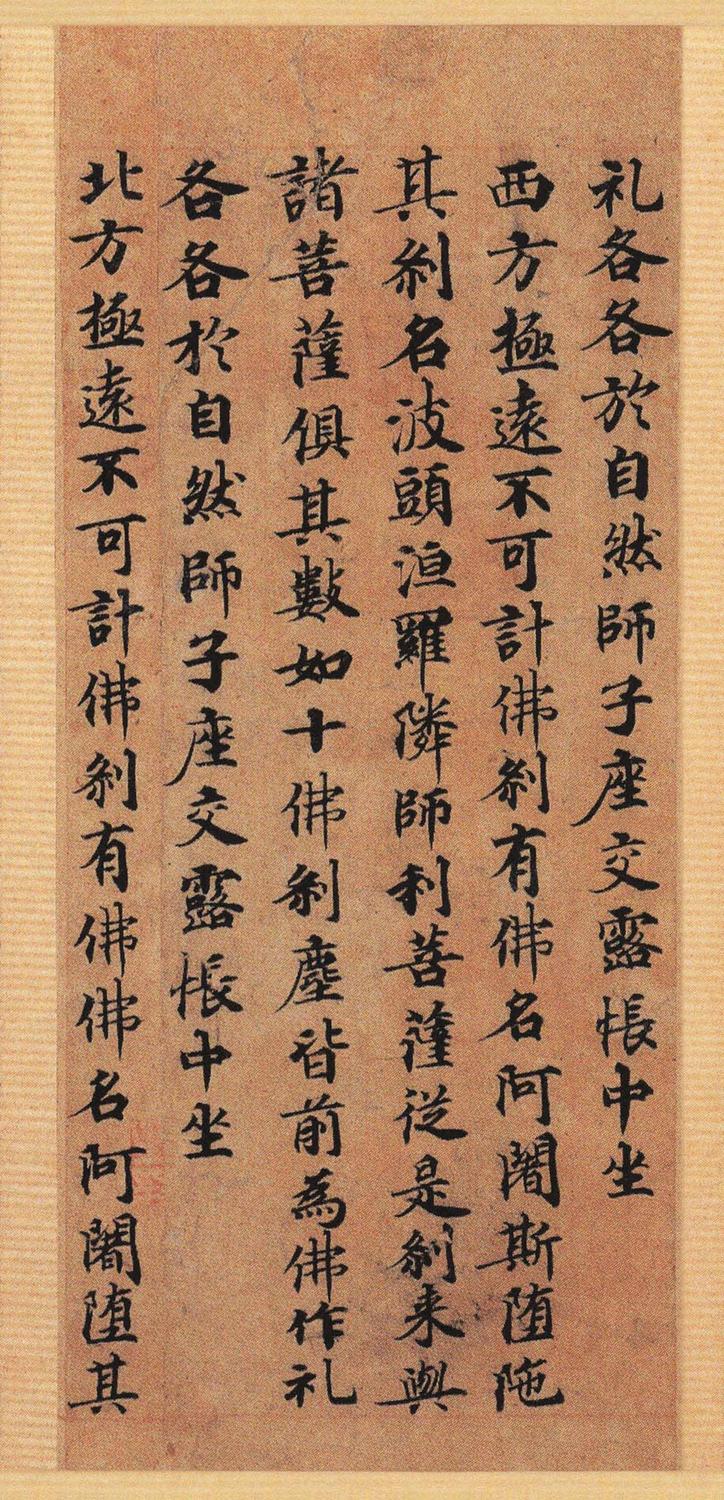 礼各各於自然師子座交露帳中坐
西方極遠不可計佛刹有佛名阿闍斯堕陁
其刹名波頭洹羅隣師利菩薩従是刹来與
諸菩薩俱其數如十佛刹塵皆前為佛作礼
各各於自然師子座交露帳中坐
北方極遠不可計佛刹有佛佛名阿闍堕其